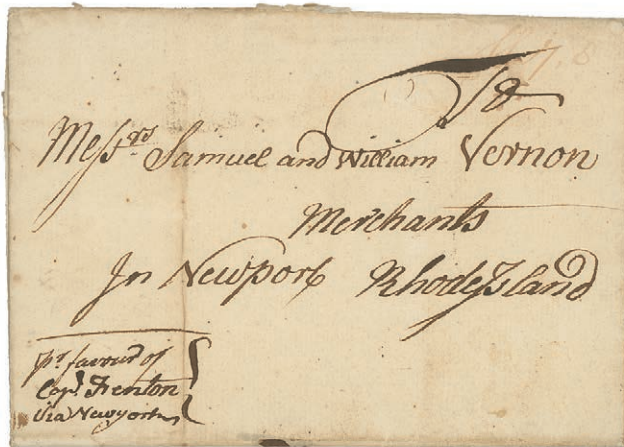 To
Messrs Samuel and William Vernon
Merchants
In Newport Rhode Island
pr favour of
Capt Frenton
Via Newyork